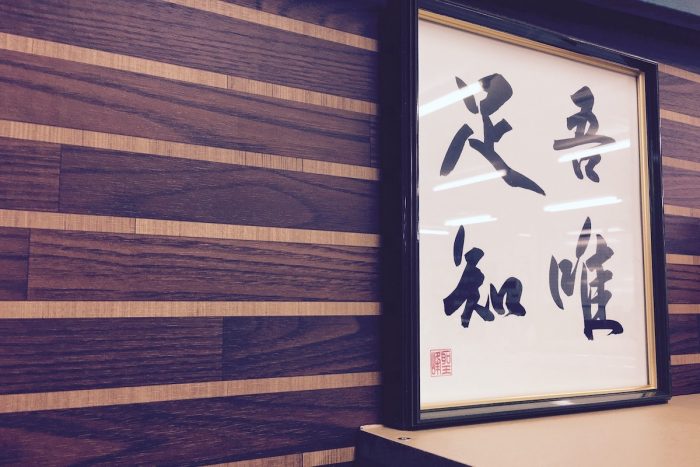 吾唯
足知